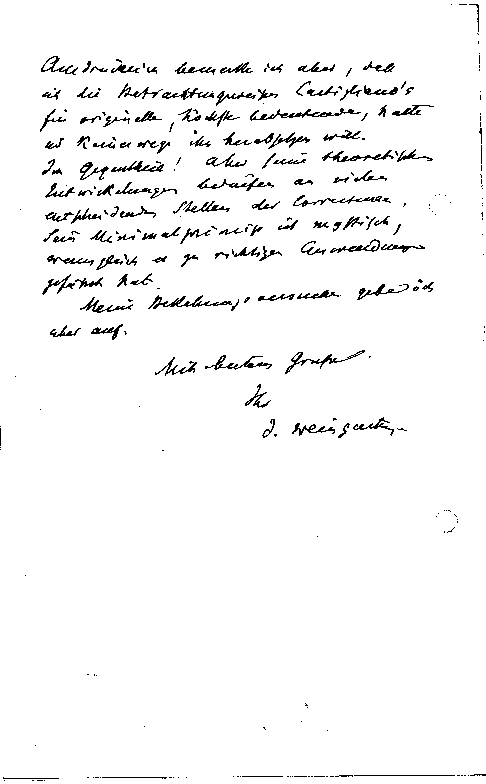 Ausdrücklich bemerke ich aber, daß
ich die Betrachtungsweisen Castigliano's
für originelle, höchst bedeutende, halte
und keineswegs ihn herabsetzen will.
Im Gegentheil! Aber seine theoretischen
Entwickelungen bedürfen an vielen
entscheidenden Stellen der Correcturen.
Sein Minimalprincip ist mystisch,
wenngleich es zu richtigen Anwendungen
geführt hat.
Meine Bekehrungsversuche gebe ich
aber auf.
Mit bestem Gruße
Ihr
J. Weingarten